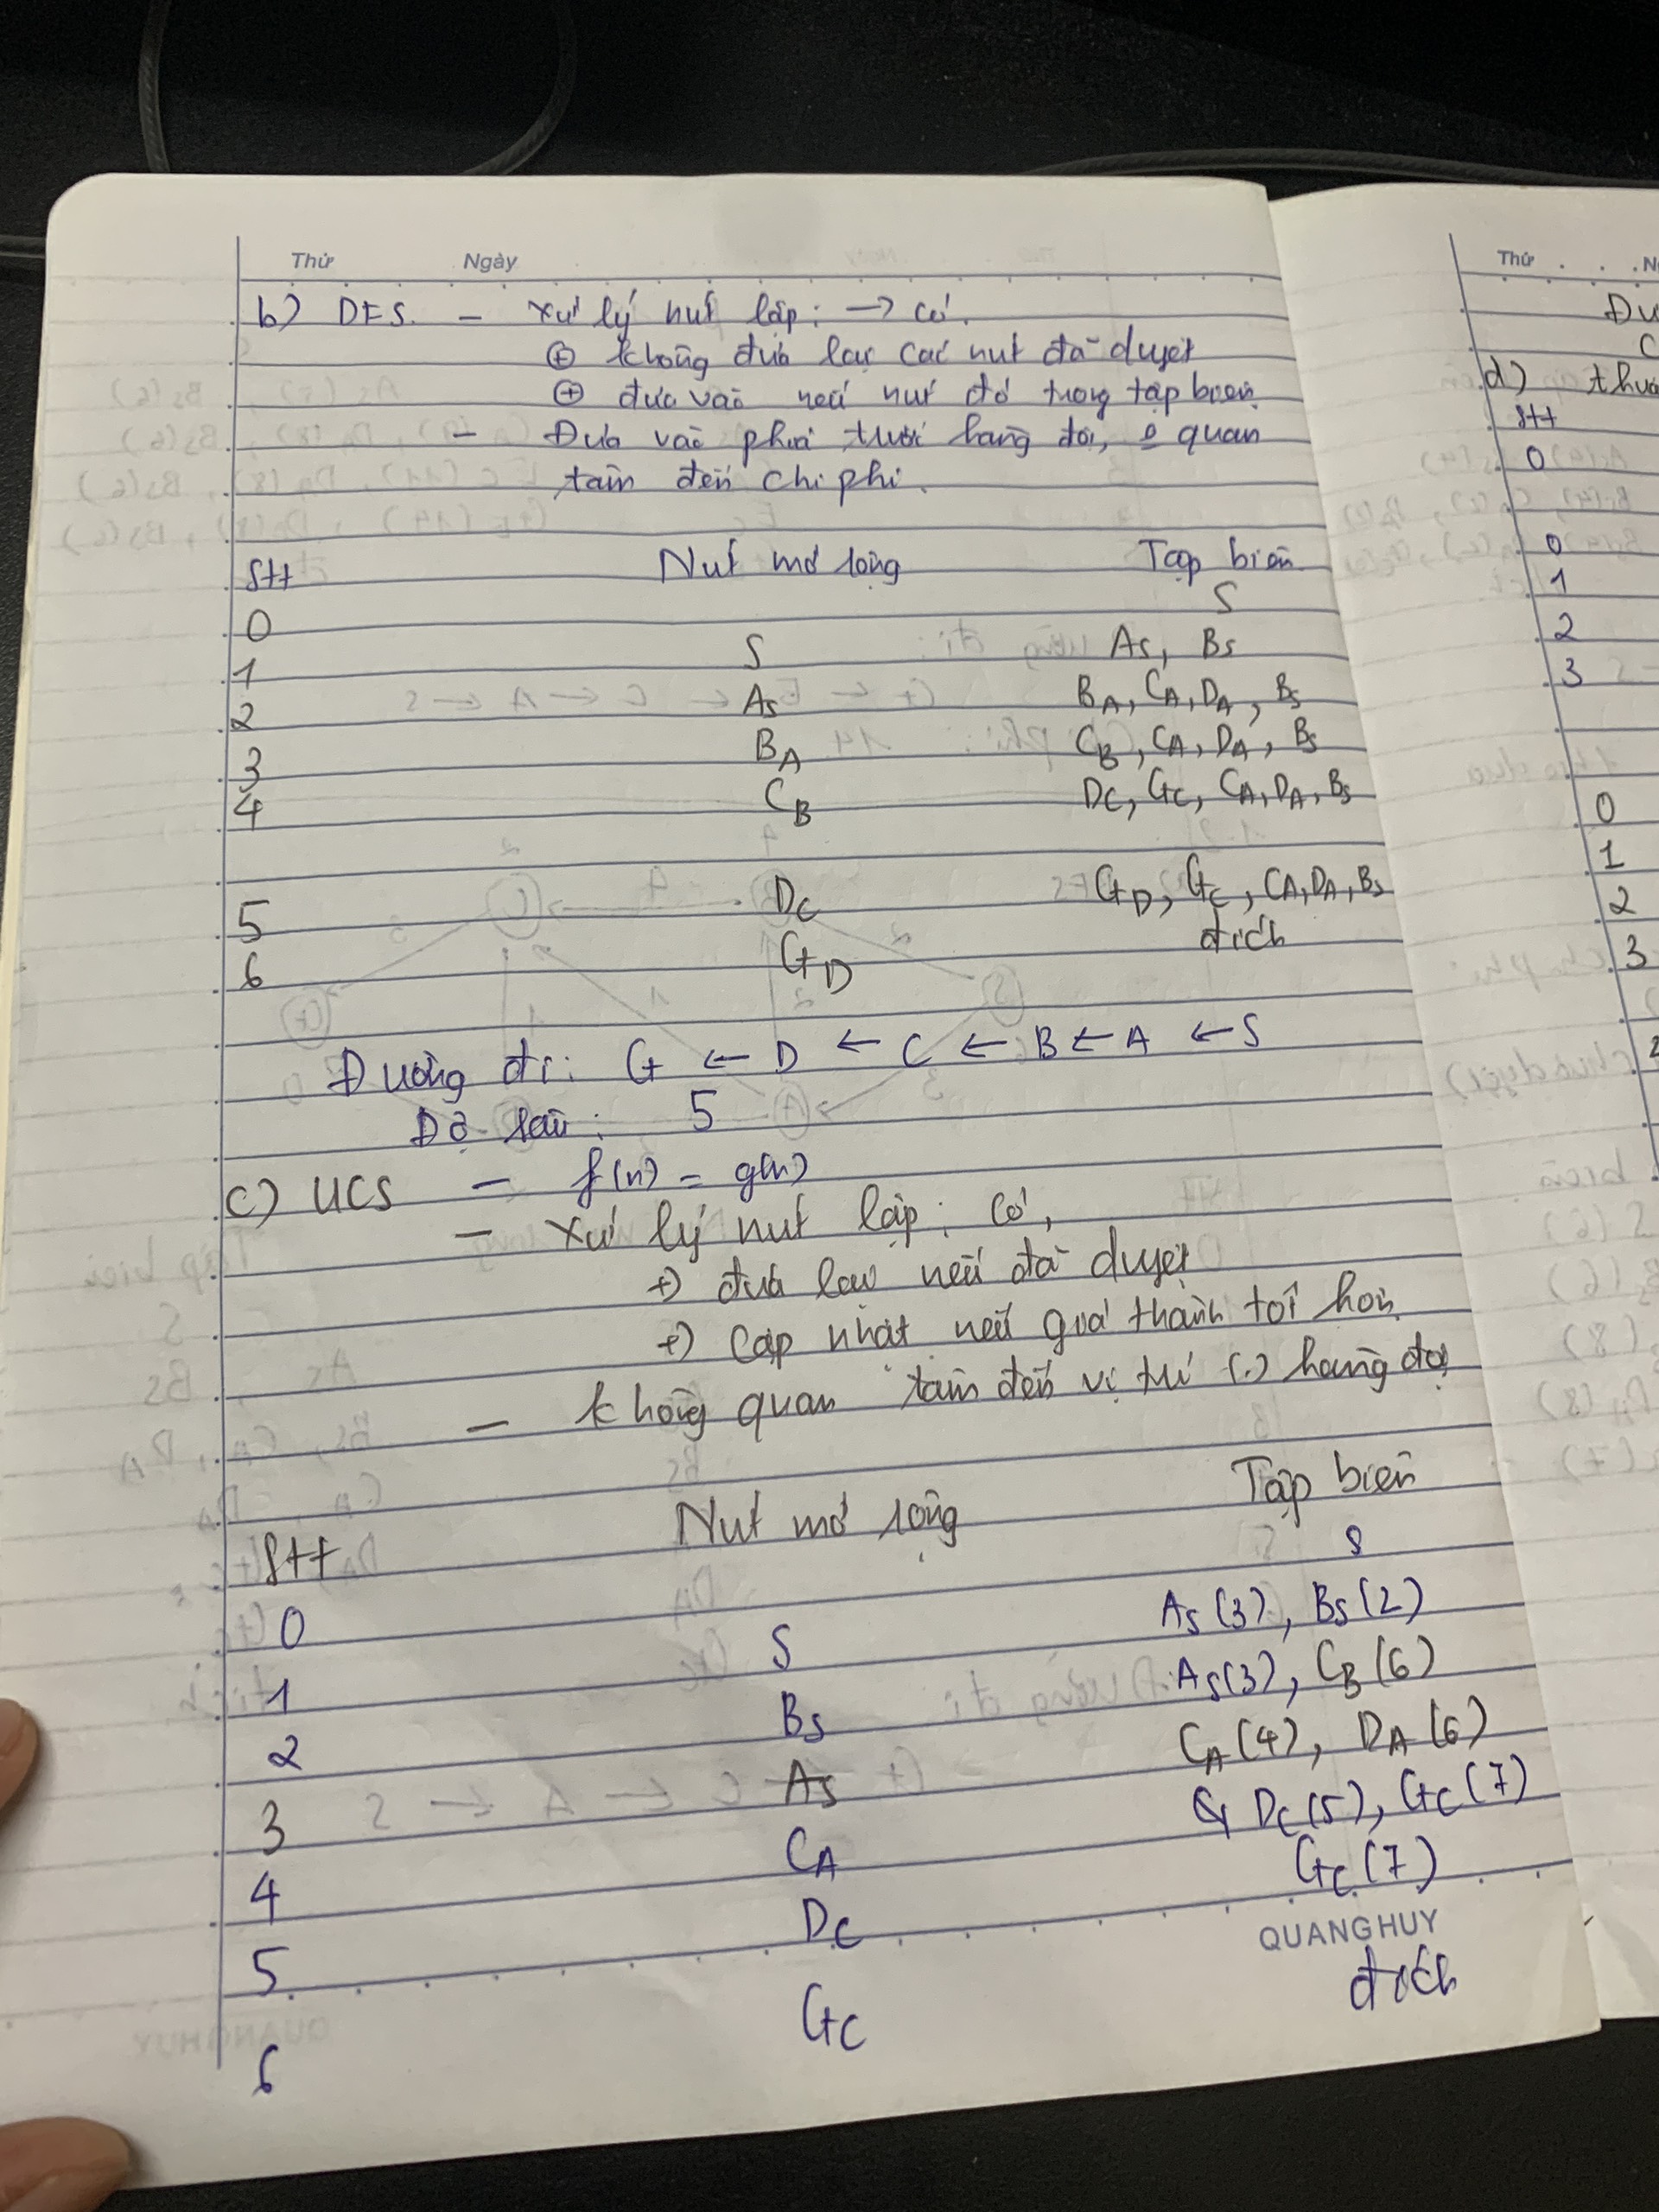 Thứ Ngày
b) DFS. - Xử lý nút lặp: → có.
⊕ không đưa lại các nút đã duyệt
⊕ đưa vào nếu nút đó trong tập biên
- Đưa vào phía trước hàng đợi, quan
tâm đến chi phí.
Stt Nút mở rộng Tập biên
0 S
1 S As, Bs
2 As BA, CA, DA, Bs
3 BA CB, CA, DA, Bs
4 CB DC, GC, CA, DA, Bs
5 DC GD, GC, CA, DA, Bs
6 GD đích
Đường đi: G ← D ← C ← B ← A ← S
Độ sâu: 5
c) UCS - f(n) = g(n)
- Xử lý nút lặp: Có,
+) đưa lại nếu đã duyệt
+) Cập nhật nếu giá thành tốt hơn
- không quan tâm đến vị trí (.) hàng đợi
Stt Nút mở rộng Tập biên
0 S
1 S As(3), Bs(2)
2 Bs As(3), CB(6)
3 As CA(4), DA(6)
4 CA DC(5), GC(7)
5 DC GC(7)
6 GC đích
QUANG HUY
Thứ
d)
Stt
0
0
1
2
3
0
1
2
3